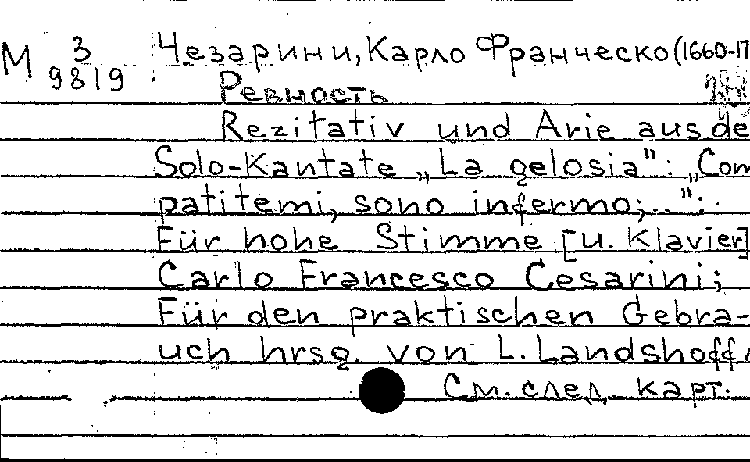 М 3
9819
Чезарини, Карло Франческо (1660-17
Ревность
Rezitativ und Arie aus de
Solo-Kantate „La gelosia": „Com
patitemi, sono infermo;..":
Für hohe Stimme [u. Klavier]
Carlo Francesco Cesarini;
Für den praktischen Gebra-
uch hrsg. von L. Landshoff.
См. след. карт.